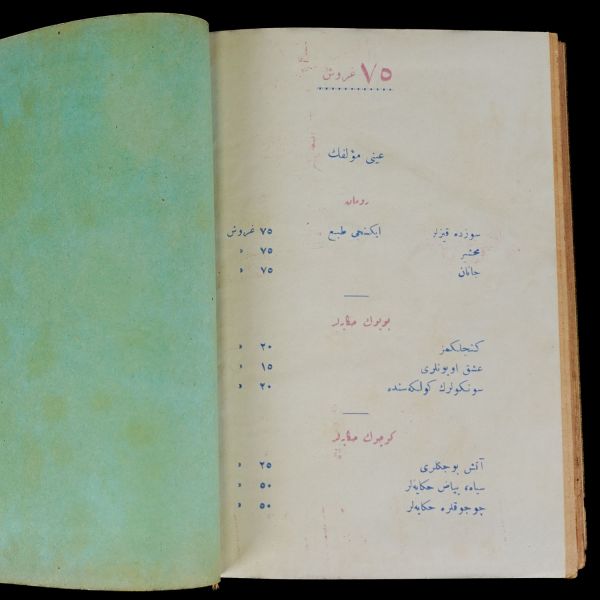 ٧٥ غروش
عينى مؤلفك
رومان
سوزده قيزلر ايكنجى طبع ٧٥ غروش
محشر ٧٥ »
جانان ٧٥ »
بويوك حكايه‌لر
كنجلكمز ٢٠ »
عشق اويونلرى ١٥ »
سونكولرك كولكه‌سنده ٢٠ »
كوچوك حكايه‌لر
آتش بوجكلرى ٢٥ »
سياه، بياض حكايه‌لر ٥٠ »
چوجوقلره حكايه‌لر ٥٠ »